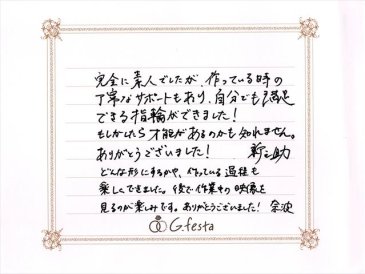 完全に素人でしたが、作っている時の
丁寧なサポートもあり、自分でも満足
できる指輪ができました！
もしかしたら才能があるのかも知れません。
ありがとうございました！ 新之助
どんな形にするかや、作っている過程も
楽しくできました。後で作業中の映像を
見るのが楽しみです。ありがとうございました！ 奈波
G.festa